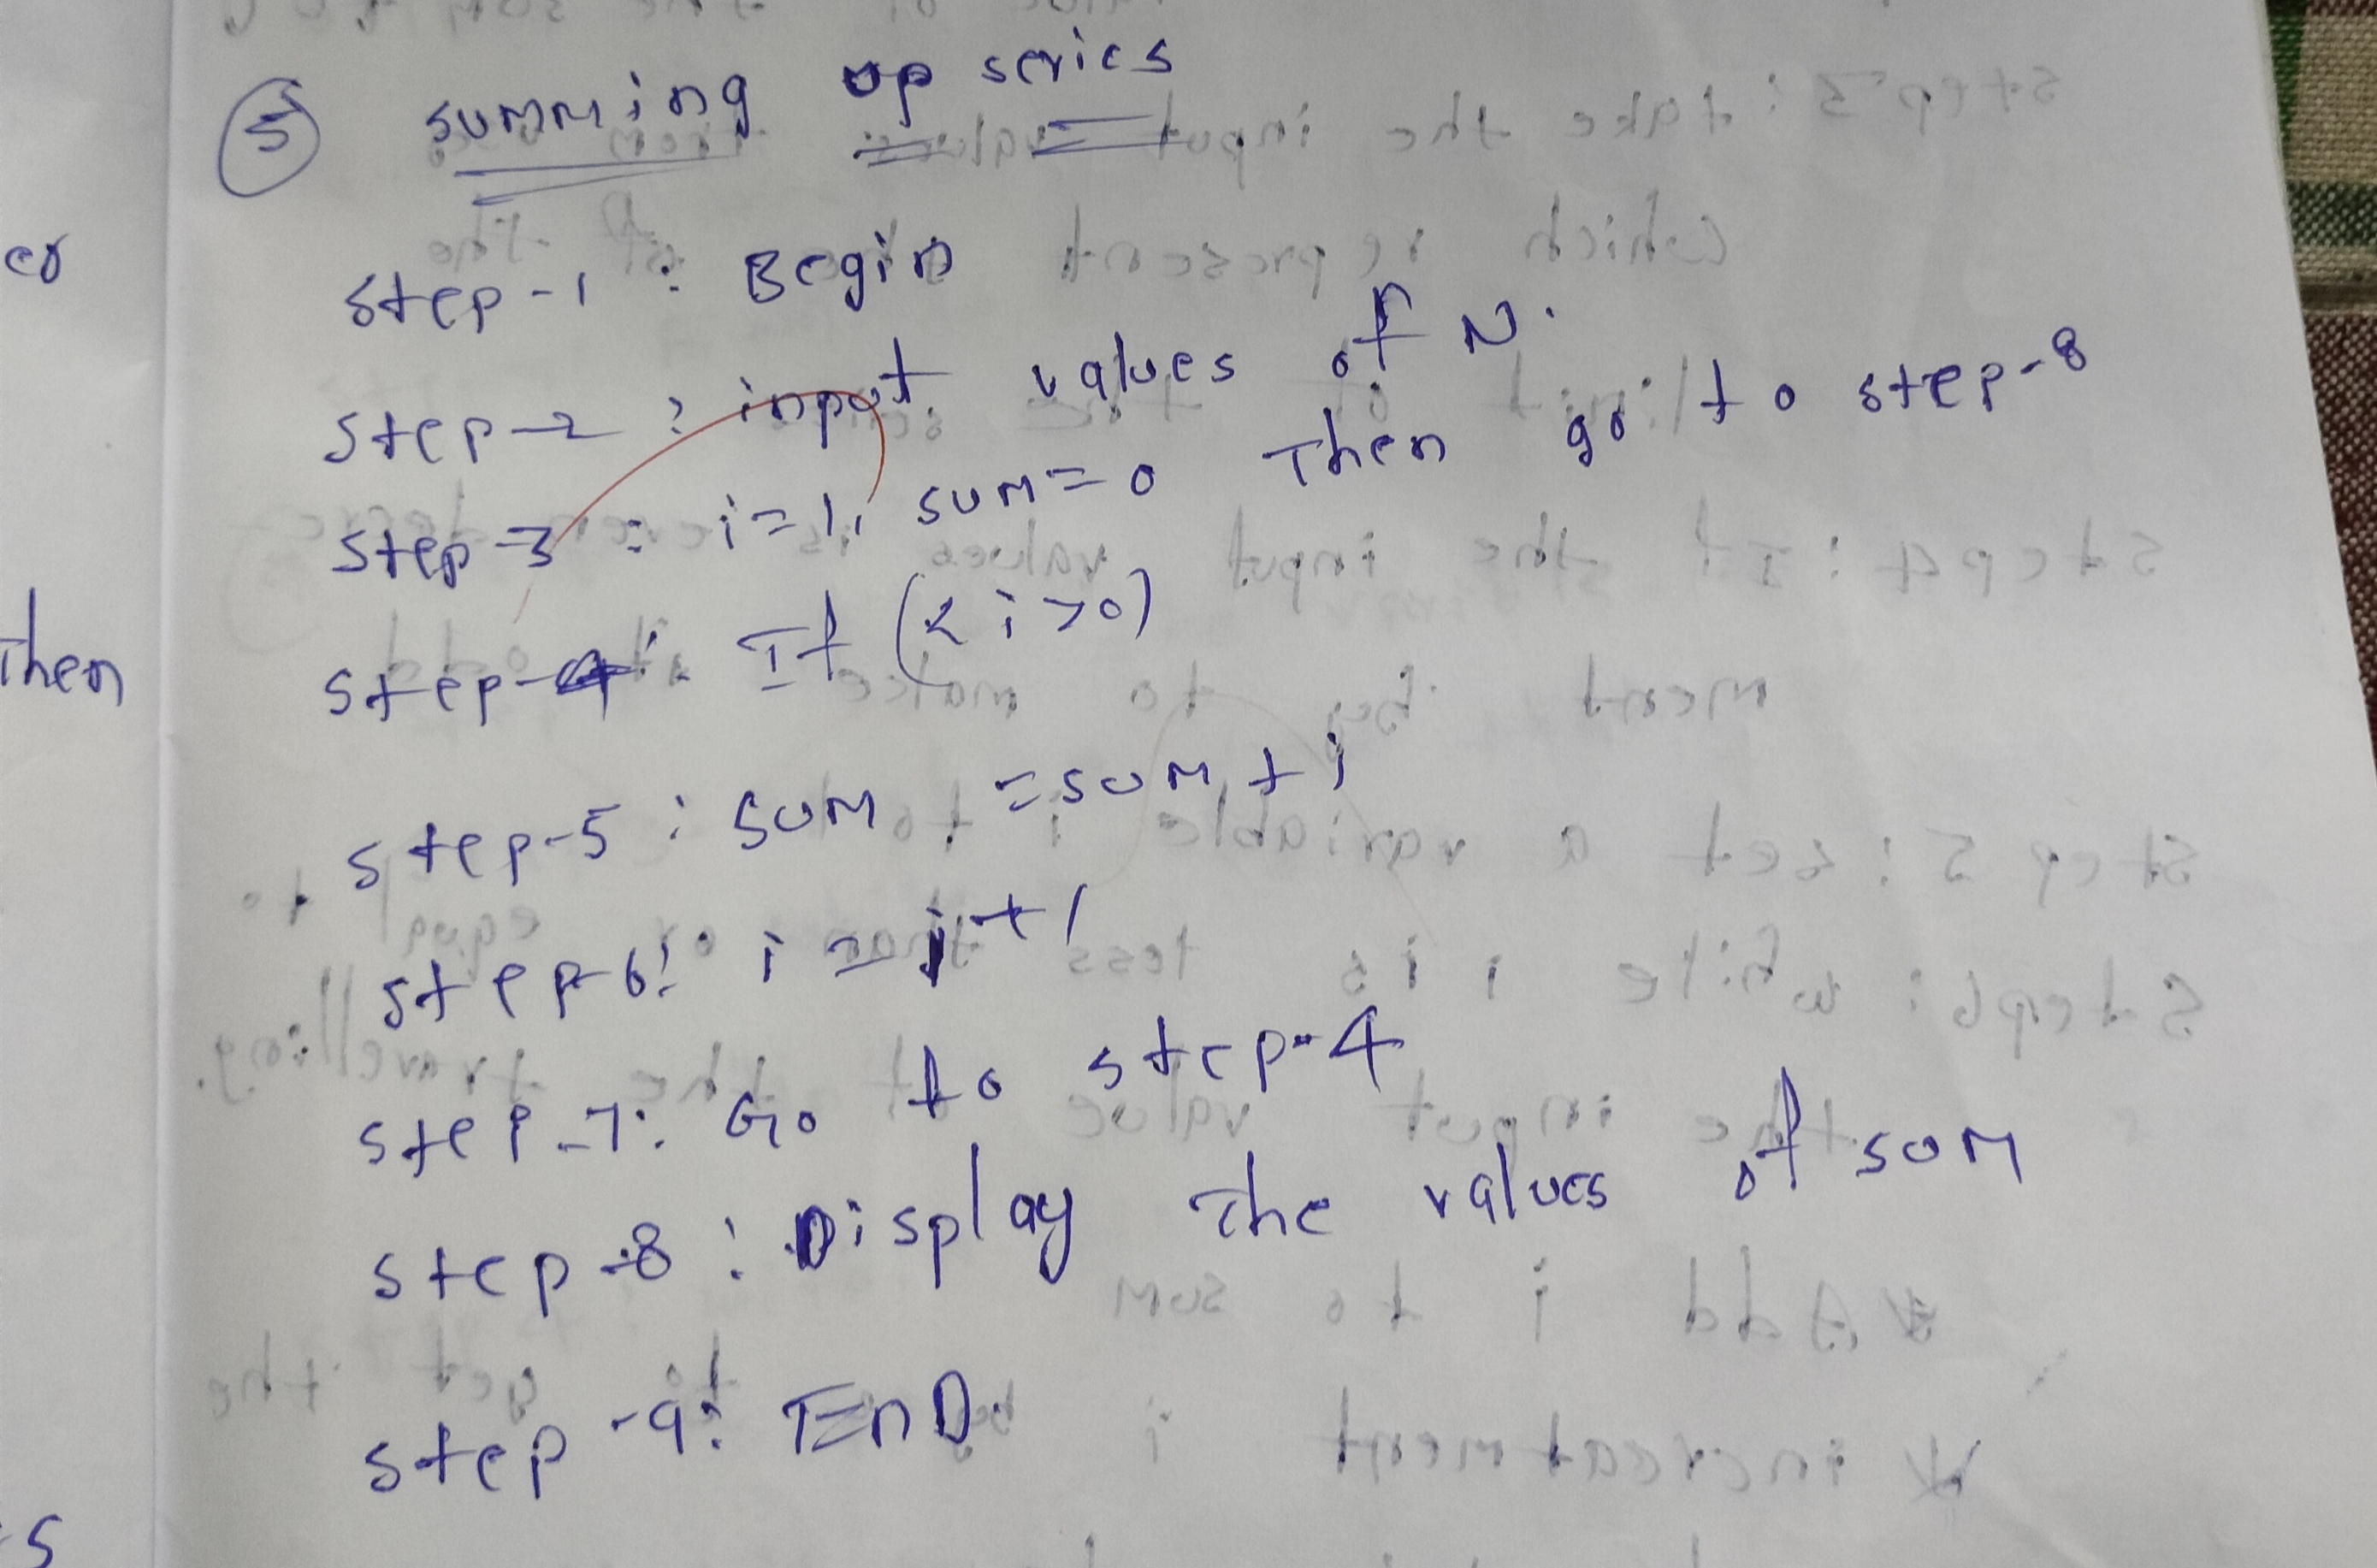 5 summing up series
er
step-1 : Begin
step-2 : input values of N.
step-3 : i=1, sum=0 Then go to step-8
Then
step-4: If (< i >0)
step-5 : sum = sum + i
step-6: i = i+1
step-7: Go to step-4
step-8 : Display The values of sum
step-9: EnD
s